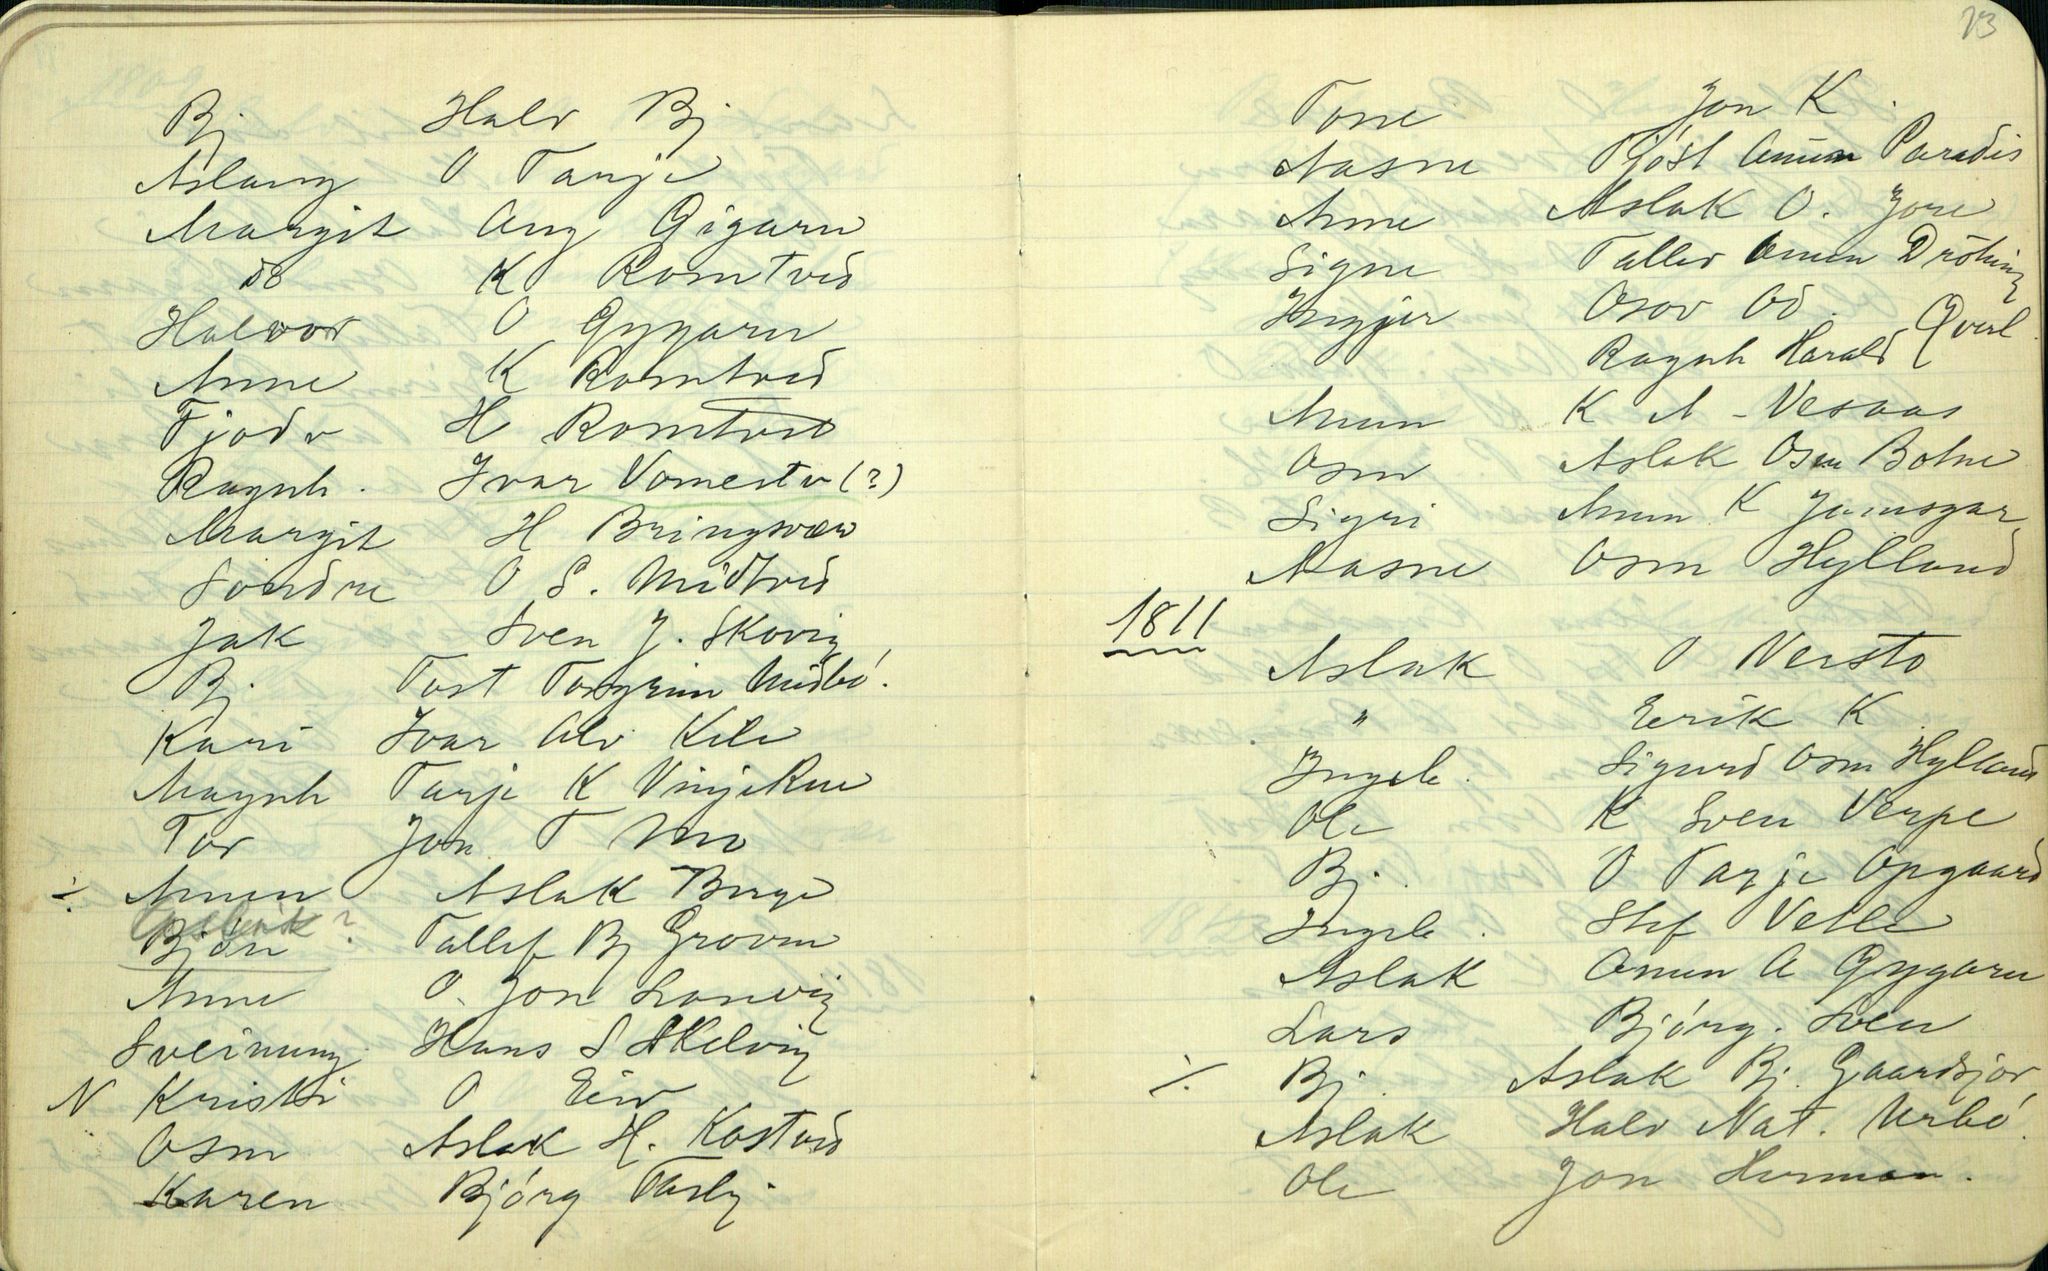 Bj Halv Bj
Aslaug O Tarje
Margit Aug Gigarn
do K Romtved
Halvor O Gygarn
Anne K Romtved
Tjodv H Romtved
Ragnh. Ivar Vamestv (?)
Margit H Bringsvær
Sondre O S. Midtved
Jak Sven J. Skovig
Bj. Tost Torgrim Midbø.
Kari Ivar Olv Kile
Magnh Tarje K Vinje Rue
Tor Jon T Mo
÷ Amun Aslak Berge
Bjøn ? Tallef Bj Groven
Anne O. Jon Lonvig
Sveinung Hans S Skelvig
N Kristi O Eiv
Osm Aslak H. Kostved
Karen Bjørg Tarlj.
23
Tone Jon K.
Aasne Tjøst Amun Paradis
Anne Aslak O. Jore
Signe Tallev Amun Drøtning
Ingjer Osov Od.
Ragnh Harald Qverl
Amun K A - Vesaas
Osm Aslak Osm Botne
Sigri Amun K Jamsgar
Aasne Osm Hylland
1811
Aslak O Nersto
" Eerik K
Ingeb. Sigurd Osm Hylland
Ole K Sven Verpe
Bj. O Tarje Opgaard
Ingeb. Stef Velle
Aslak Amun A Gygarn
Lars Bjørg. Sven
÷ Bj. Aslak Bj. Gaardsjor
Aslak Halv Nat. Urbø.
Ole Jon Herman.